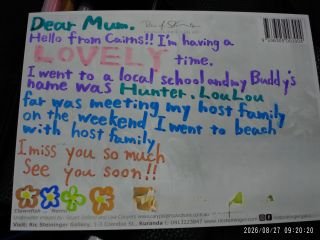 Dear Mum.
Hello from Cairns!! I'm having a
LOVELY time.
I went to a local school and my Buddy's
name was Hunter. LouLou
far was meeting my host family
on the weekend I went to beach
with host family
I miss you so much
See you soon!!
Visit: Ric Steininger Gallery,
Kuranda
2026/08/27 09:20:20